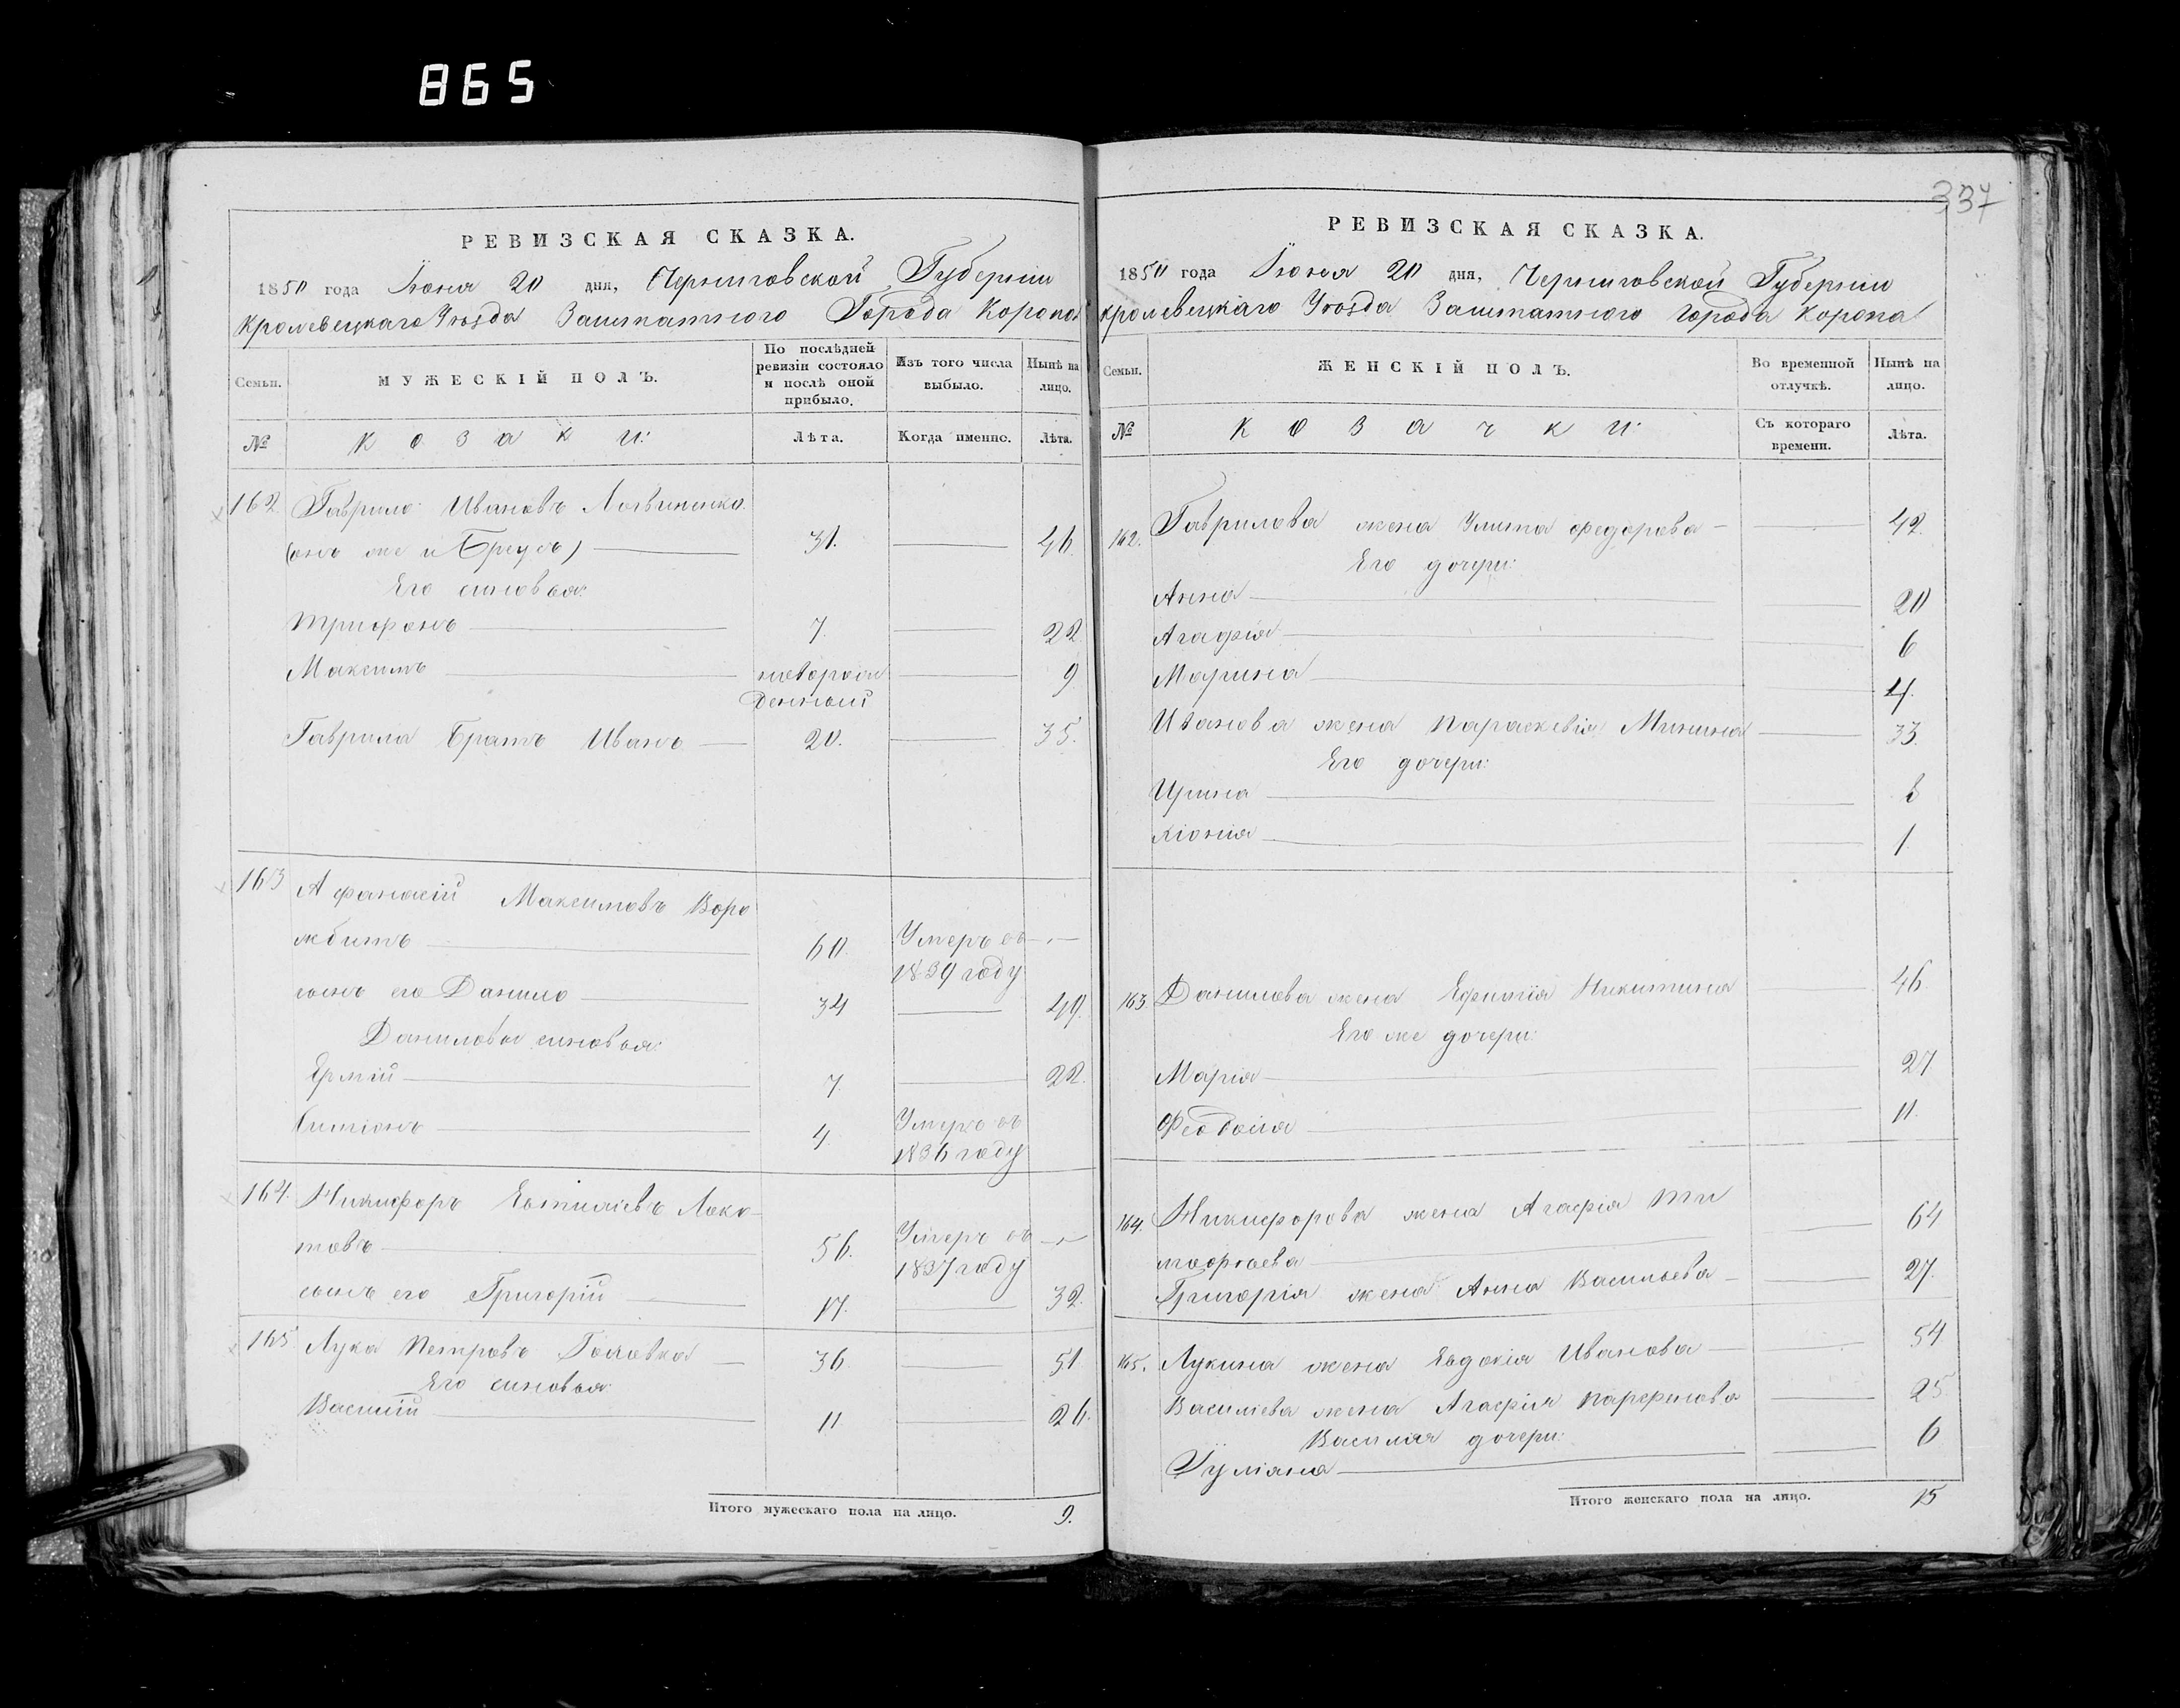 865
337
РЕВИЗСКАЯ СКАЗКА.
1850 года Іюня 20 дня, Черниговской Губерніи
Кролевецкаго Уѣзда Заштатного Города Коропа
Семьи.
МУЖЕСКІЙ ПОЛЪ.
По послѣдней ревизіи состояло и послѣ оной прибыло.
Изъ того числа выбыло.
Нынѣ на лицо.
№
Козаки:
Лѣта.
Когда именно.
Лѣта.
162 Гаврило Ивановъ Логвиненко
(онъ же и Бреусъ) 31. 46
Его синовья:
Трифонъ 7. 22.
Максимъ новорож 9
денный
Гаврила братъ Иванъ 20. 35.
163 Афанасій Максимовъ Воро
жбитъ 60. Умеръ въ
1839 году
сынъ его Данило 34 49.
Данилова синовья:
Ермій 7. 22.
Симіонъ 4. Умеръ въ
1836 году
164. Никифоръ Евтиліевъ Локо
товъ 56. Умеръ въ
1837 году
сынъ его Григорій 17. 32.
165 Лука Петровъ Головка 36. 51
Его синовья:
Василій 11. 26.
Итого мужескаго пола на лицо. 9.
РЕВИЗСКАЯ СКАЗКА.
1850 года Іюня 20 дня, Черниговской Губерніи
Кролевецкаго Уѣзда Заштатного города Коропа
Семьи.
ЖЕНСКІЙ ПОЛЪ.
Во временной отлучкѣ.
Нынѣ на лицо.
№
Козачки:
Съ котораго времени.
Лѣта.
162. Гаврилова жена Улита Федорова 42.
Его дочери:
Анна 20
Агафія 6
Марина 4.
Иванова жена Параскевія Минина 33.
Его дочери:
Ирина
Хіонія 1.
163. Данилова жена Ефимія Никитина 46
Его же дочери:
Марія 27
Феодосія 11.
164. Никифорова жена Агафія Ти
мофѣева 64
Григорія жена Анна Васильева 27.
165. Лукина жена Евдокія Иванова 54
Василіева жена Агафія Парфенова 25
Василія дочери:
Іуліана 6
Итого женскаго пола на лицо. 15